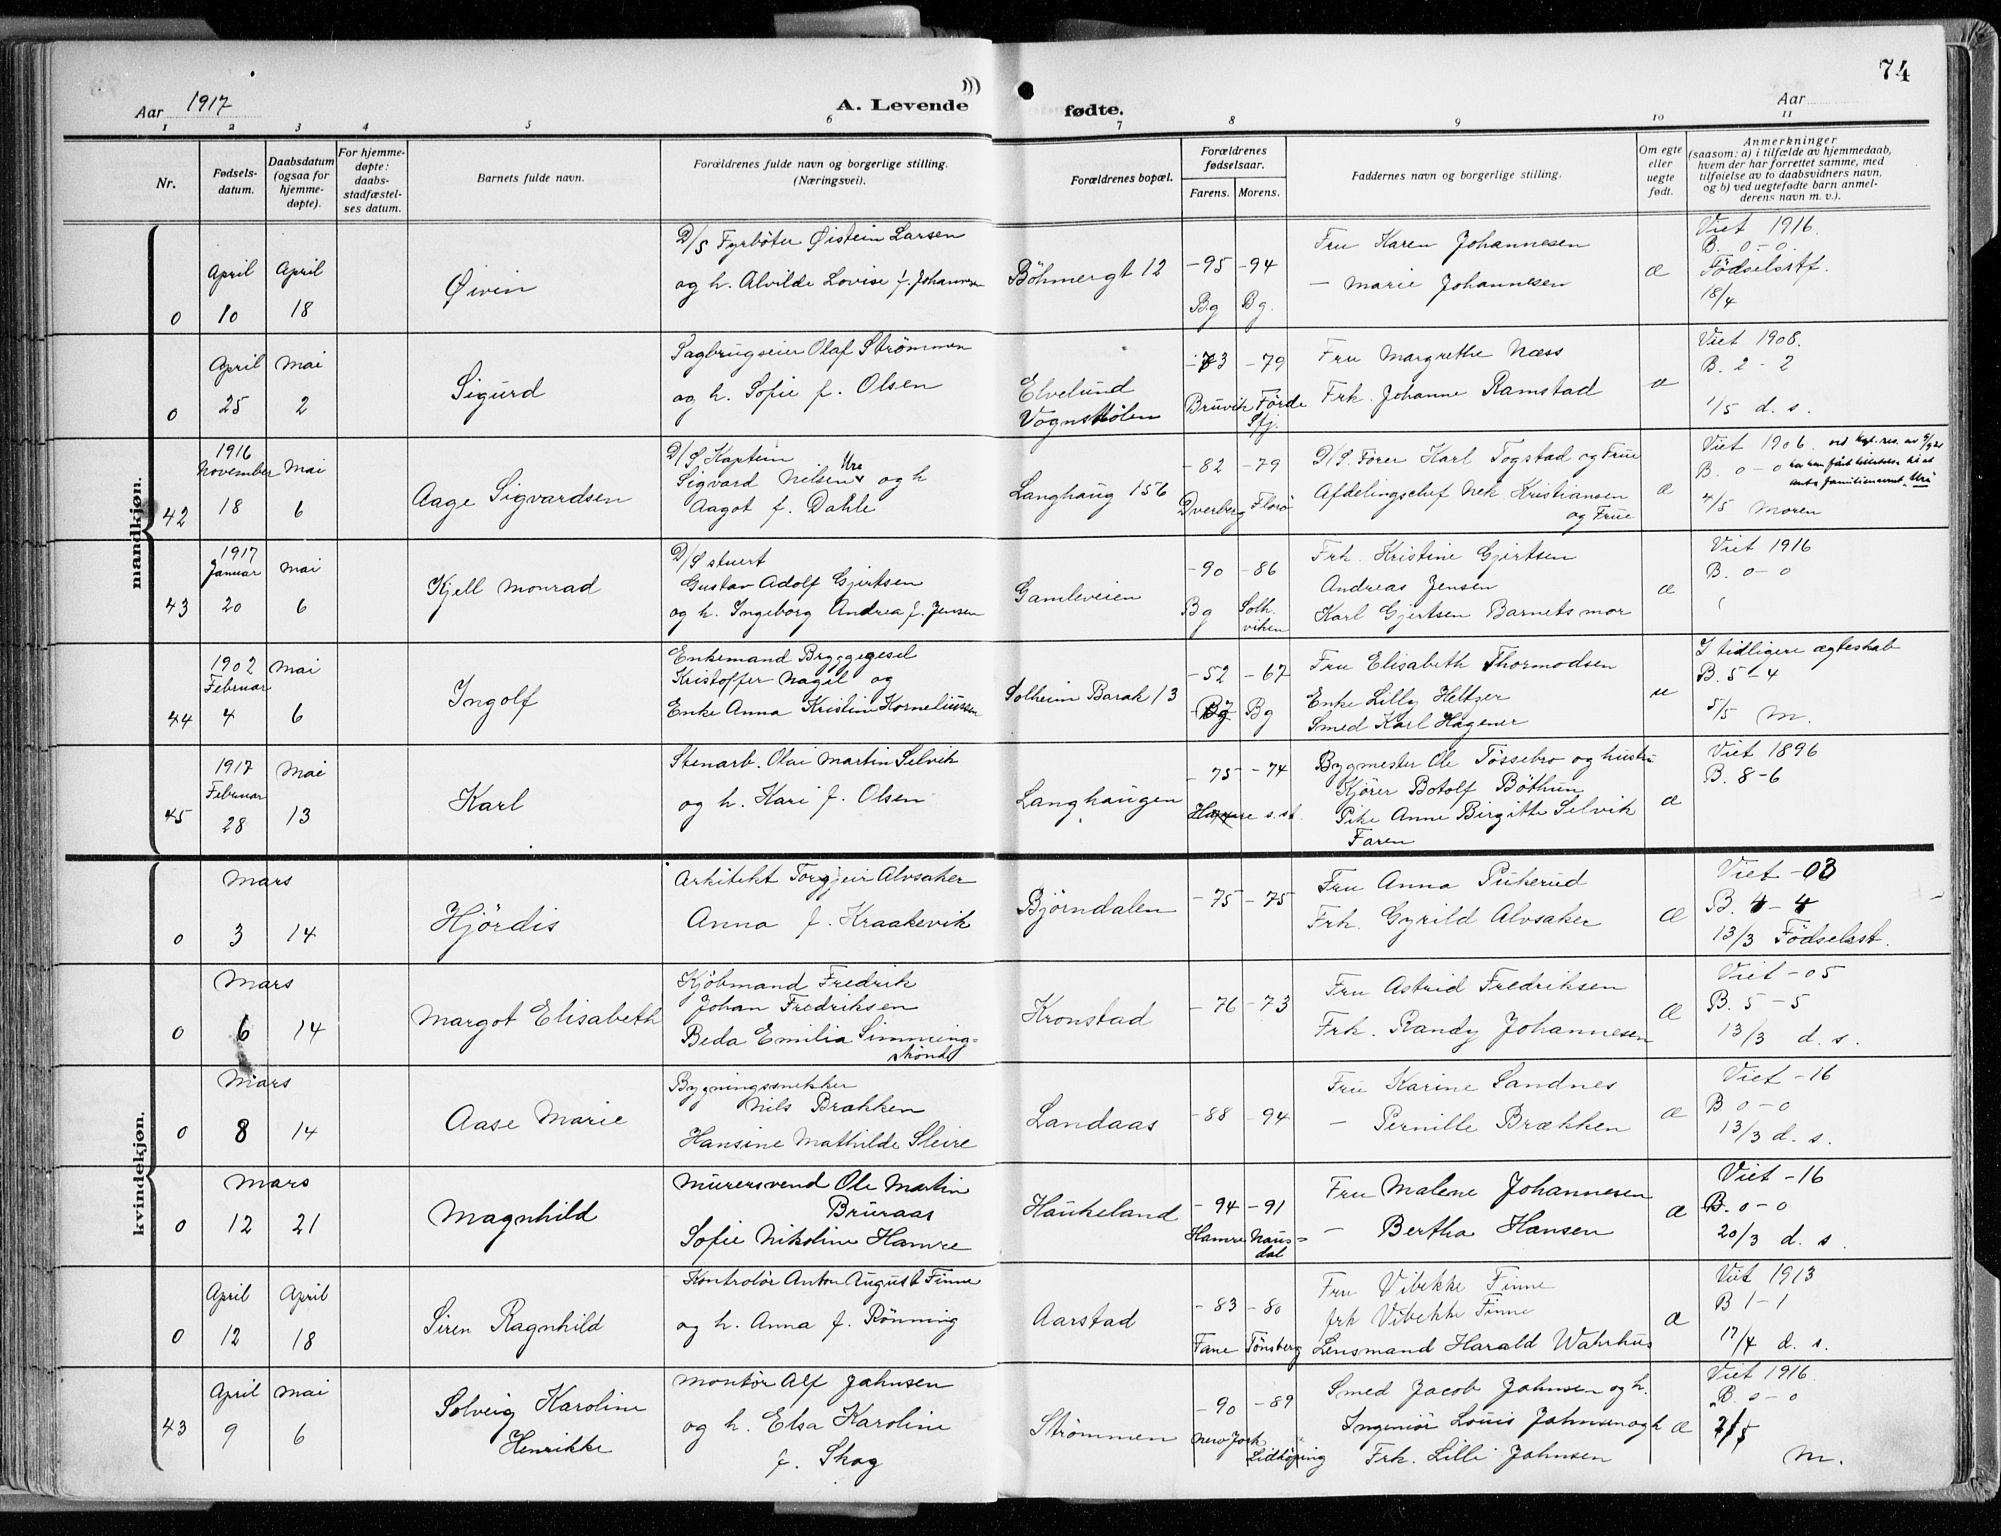 74
Aar 1917
A. Levende
fødte.
Aar
1 2 3 4 5 6 7 8 9 10 11
Nr.
Fødsels-
datum.
Daabsdatum
(ogsaa for
hjemme-
døpte).
For hjemme-
døpte:
daabs-
stadfæstel-
ses datum.
Barnets fulde navn.
Forældrenes fulde navn og borgerlige stilling.
(Næringsvei).
Forældrenes bopæl.
Forældrenes
fødselsaar.
Farens. Morens.
Faddernes navn og borgerlige stilling.
Om egte
eller
uegte
født.
Anmerkninger
(saasom: a) i tilfælde av hjemmedaab,
hvem der har forrettet samme, med
tilføielse av to daabsvidners navn,
og b) ved uegtefødte barn anmel-
derens navn m. v.).
mandkjøn.
0
April
10
April
18
Øivin
D/S Fyrbøter Øistein Larsen
og h. Alvilde Lovise f. Johannesen
Böhmergt 12
-95 -94
Bg Bg.
Fru Karen Johannesen
— Marie Johannesen
æ
Viet 1916.
B. 0-0.
Fødselsatf.
18/4
0
April
25
Mai
2
Sigurd
Sagbrugseier Olaf Strømmen
og h. Sofie f. Olsen
Elvelund
Vognstølen
-73 -79
Bruvik Førde
Sfj.
Fru Margrethe Næss
Frk. Johanne Ramstad
æ
Viet 1908.
B. 2-2
1/5 d. s.
42
1916
November
18
Mai
6
Aage Sigvardsen
D/S Kaptein
Sigvard Nilsen Ure og h
Aagot f. Dahle
Langhaug 156
-82 -79
Dverberg Florø
D/S. Fører Karl Togstad og Frue
Afdelingschef Nek Kristiansen
og Frue
æ
Viet 1906.
B. 0-0
4/5 Moren
43
1917
Januar
20
Mai
6
Kjell Monrad
D/S stuert
Gustav Adolf Gjertsen
og h. Ingeborg Andrea f. Jensen
Gamleveien
-90 -86
Bg Solh.
viken
Frk. Kristine Gjertsen
Andreas Jensen
Karl Gjertsen Barnets mor
æ
Viet 1916
B. 0-0
44
1902
Februar
4
Mai
6
Ingolf
Enkemand Bryggegesel
Kristoffer Nagel og
Enke Anna Kristine Korneliussen
Solheim Barak 13
-52 -67
Bg Bg
Fru Elisabeth Thormodsen
Enke Lilly Heltzer
Smed Karl Hagener
u
I tidligere ægteskab
B. 5-4
5/5 M.
45
1917
Februar
28
Mai
13
Karl
Stenarb. Olai Martin Selvik
og h. Kari f. Olsen
Langhaugen
-75 -74
Hamre s. st.
Bygmester Ole Tøssebro og hustru
Kjører Botolf Bøthun
Pike Anne Birgitte Selvik
Faren
æ
Viet 1896
B. 8-6
kvindekjøn.
0
Mars
3 14
Hjördis
Arkitekt Torgjeir Alvsaker
Anna f. Kraakevik
Björndalen
-75 -75
Fru Anna Pukerud
Frk. Gyrild Alvsaker
æ
Viet -03
B. 4-4
13/3 Fødselsst.
0
Mars
6 14
Margot Elisabeth
Kjöbmand Fredrik
Johan Fredriksen
Beda Emilia Simming-
skönd
Kronstad
-76 -73
Fru Astrid Fredriksen
Frk. Randy Johannesen
æ
Viet -05
B. 5-5
13/3 d. s.
0
Mars
8 14
Aase Marie
Bygningssnekker
Nils Brækken
Hansine Mathilde Sleire
Landaas
-88 -94
Fru Karine Sandnes
— Pernille Brækken
æ
Viet -16
B 0-0
13/3 d. s.
0
Mars
12 21
Magnhild
Murersvend Ole Martin
Bruraas
Sofie Nikoline Hamre
Haukeland
-94 -91
Hamre Naus-
dal
Fru Malene Johannesen
— Bertha Hansen
æ
Viet -16
B. 0-0
20/3 d. s.
0
April
12
April
18
Siren Ragnhild
Kontrolør Anton August Finne
og h. Anna f. Rønning
Aarstad
-83 -80
Fane Tønsberg
Fru Vibekke Finne
frk Vibekke Finne
Lensmand Harald Wahrhus
æ
Viet 1913
B 1-1
17/4 d. s.
43
April
9
Mai
6
Solveig Karoline
Henrikke
Montør Alf Jahnsen
og h. Elsa Karoline
f. Skog
Strømmen
-90 -89
New York
Lidköping
Smed Jacob Jahnsen og h.
Ingeniør Louis Jahnsen og h
Frk. Lilli Jahnsen
æ
Viet 1916.
B. 0-0
M.